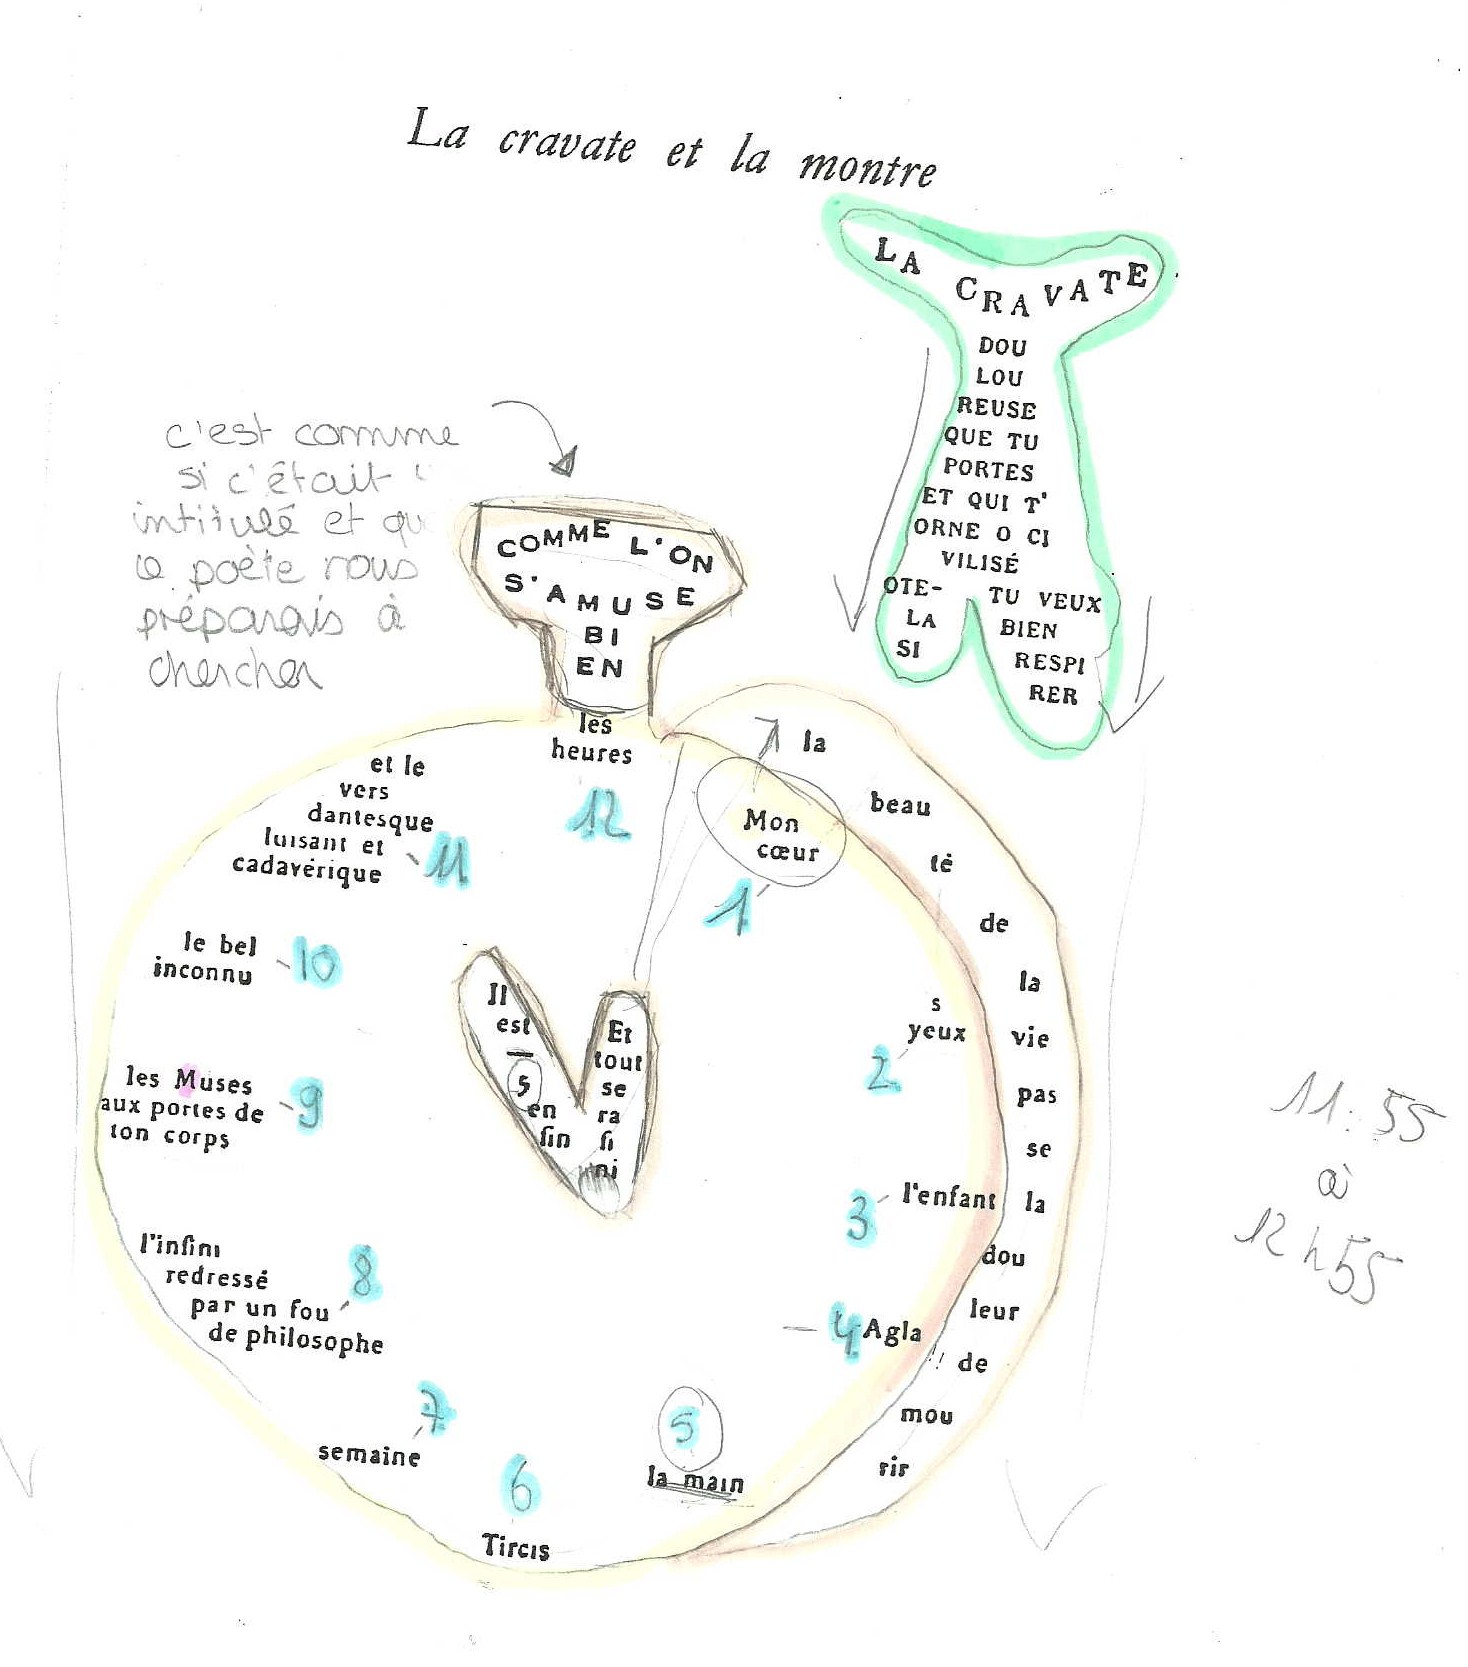 La cravate et la montre
LA CRAVATE
DOU
LOU
REUSE
QUE TU
PORTES
ET QUI T'
ORNE O CI
VILISÉ
OTE-
LA
SI
TU VEUX
BIEN
RESPI
RER
c'est comme
si c'était
intitulé et
poète nous
préparais à
chercher
COMME L'ON
S'AMUSE
BI
EN
les
heures
12
Mon
cœur
1
s
yeux
2
l'enfant
3
Agla
4
5
la main
6
Tircis
7
semaine
l'infini
redressé
par un fou
de philosophe
8
les Muses
aux portes de
ton corps
9
le bel
inconnu
10
et le
vers
dantesque
luisant et
cadavérique
11
Il
est
—
5
en
fin
Et
tout
se
ra
fi
ni
la
beau
té
de
la
vie
pas
se
la
dou
leur
de
mou
rir
11:55
à
12h55